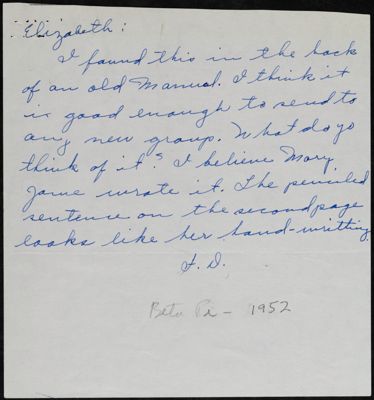 Elizabeth:
I found this in the back
of an old Manual. I think it
is good enough to send to
any new group. What do yo
think of it? I believe Mary
Jane wrote it. The penciled
sentence on the second page
looks like her hand-writting.
F. D.
Beta Pi - 1952